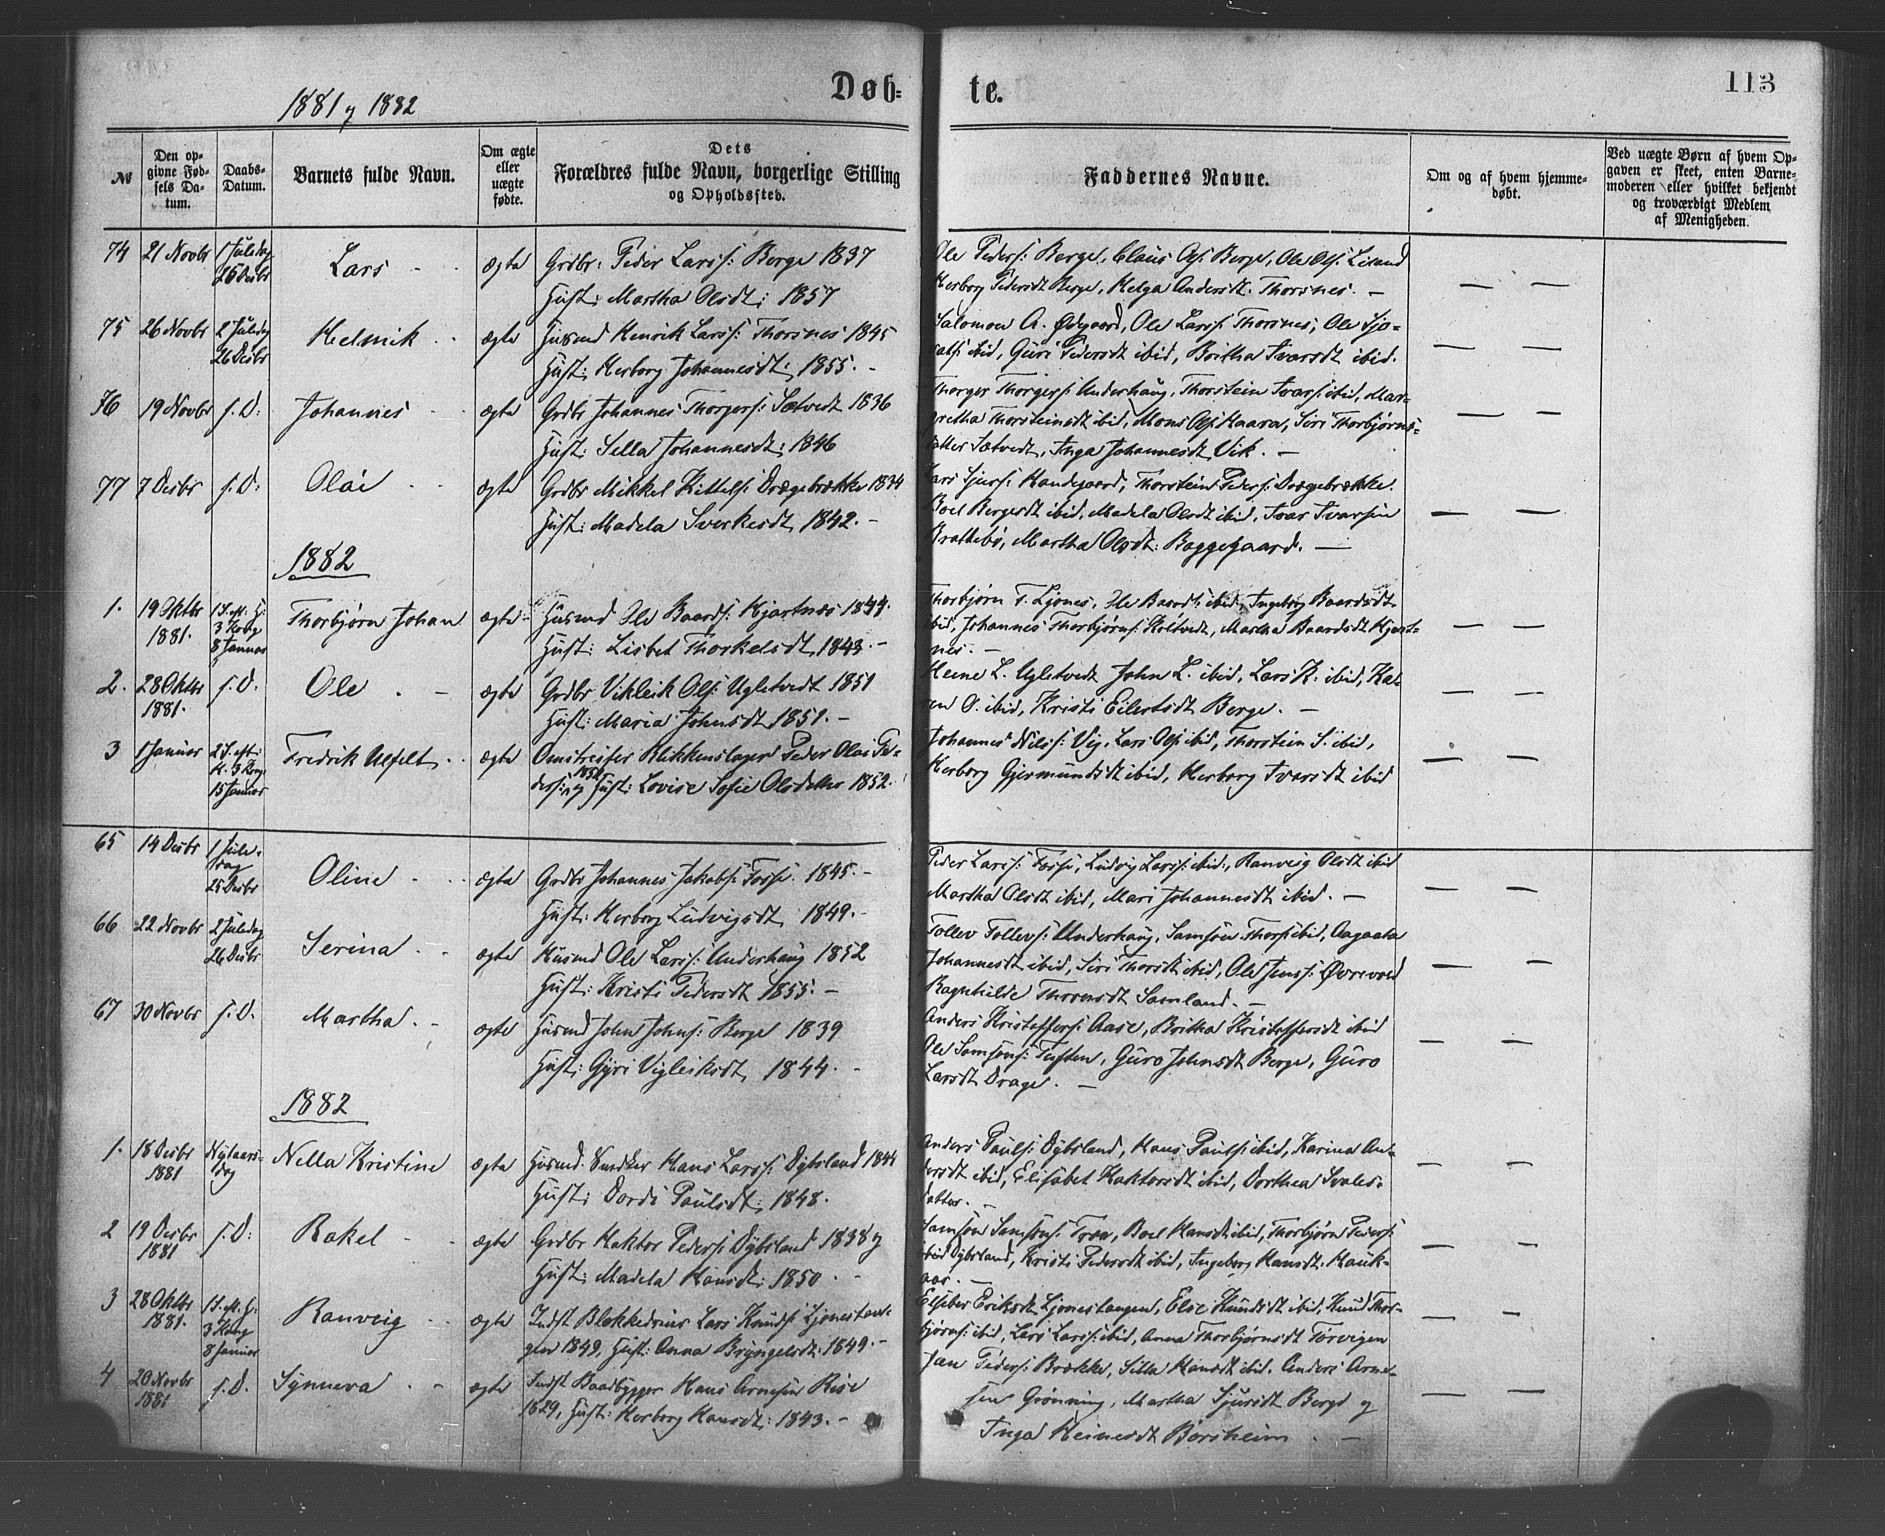 Døb-
te.
113
1881 og 1882
No
Den op-
givne Fød-
sels Da-
tum.
Daabs-
Datum.
Barnets fulde Navn.
Om ægte
eller
uægte
fødte.
Dets
Forældres fulde Navn, borgerlige Stilling
og Opholdssted.
Faddernes Navne.
Om og af hvem hjemme-
døbt.
Ved uægte Børn af hvem Op-
gaven er skeet, enten Barne-
moderen eller hvilket bekjendt
og troværdigt Medlem
af Menigheden.
74 21 Novbr 1 Juledag Lars ægte Grdbr: Peder Larss: Berge 1837
26 Desbr Hust: Martha Olsdt: 1857
Ole Peders: Berge, Claus Ols: Berge, Ole Ols:
Herborg Pedersdt Berge, Helga Andersdt: Thorsnes. —
75 26 Novbr 2 Juledag Helmik ægte Husmd Henrik Larss: Thorsnes 1845
26 Desbr Hust: Herborg Johannesdt: 1855. -
Salomon A. Ødegaard, Ole Larss: Thorsnes, Ole Sjo-
ibid, Guri Pedersdt ibid, Britha Ivarsdt ibid.
76 19 Novbr s. D: Johannes ægte Grdbr Johannes Thorgers: Sætvedt 1836
Hust: Sella Johannesdt: 1846
Thorger Thorgers: Underhaug, Thorstein Ivars: ibid, Mar-
gretha Thorsteinsdt ibid, Mons Ols: Kaara, Siri Thorbjørns-
datter Sætvedt, Inga Johannesdt Vik. -
77 7 Desbr s. D: Olai ægte Grdbr Mikkel Kittels: Drægebrække 1834
Hust: Madela Sverkesdt, 1842. -
Lars Sjurs: Kandegaard, Thorstein Peders: Drægebrække.
Boel Bergesdt ibid, Madela Olsdt ibid, Ivar Ivarsen
Brattebø, Martha Olsdt: Baggegaard. —
1882
1. 19 Oktbr 1 S. e. H: Thorbjørn Johan ægte Husmd Ole Baards: Kjartnæs 1844.
1881. 3 Kong Hust: Lisbet Thorkelsdt, 1843. -
8 Januar
Thorbjørn T. Ljones, Ole Baards: ibid, Ingeborg Baardsdt
ibid, Johannes Thorbjørns: , Martha Baardsdt Kjart-
nes. -
2. 28 Oktbr s. D. Ole ægte Grdbr Vikleik Ols: Ugletvedt 1851
1881. Hust: Maria Johnsdt 1851. -
Heine L. Ugletvedt John L. ibid, Lars K. ibid, Ka-
ren O. ibid, Kristi Eilertsdt Berge. —
3 1 Januar 2 S. eft: Fredrik Ulfelt ægte Omstreifer Blikkenslager Peder Olai Pe-
H. 3 Kong ders: 1852 og Hust: Lovise Sofie Olsdatter 1852.
15 Januar
Johannes Nils: Vig, Lars Ols: ibid, Thorstein S. ibid,
Herborg Gjermundsdt ibid, Herborg Ivarsdt ibid
65 14 Desbr 1 Jule-
dag Oline ægte Grdbr Johannes Jakobs: Fosse. 1845. -
25 Desbr Hust: Herborg Ludvigsdt, 1849. -
Peder Larss: Fosse, Ludvig Larss: ibid:, Ranveig Olsdt ibid
Martha Olsdt ibid, Mari Johannesdt ibid. —
66 22 Novbr 2 Juledag Serina ægte Husmd Ole Larss: Underhaug 1852
26 Desbr Hust: Kristi Pedersdt 1855. -
Tollev Tollevs: Underhaug, Samson Thors: ibid, Aagaata
Johannesdt ibid, Siri Thorsdt ibid, Ole Jens: Øvrevold
Ragnhilde Samland. -
67 30 Novbr s. D. Martha ægte Husmd John Johns: Berge 1839
Hust: Gyri Vigleiksdt, 1844. -
Anders Kristoffers: Aase, Britha Kristoffersdt ibid
Ole Samsons: Tuften, Guro Johnsdt Berge, Guro
Larsdt Drage. —
1882
1. 18 Desbr Nytaars- Nella Kristine ægte Husmd. Snedker Hans Larss: Dybsland 1844
1881 dag Hust: Dordi Paulsdt: 1848.
Anders Pauls: Dybsland, Hans Pauls: ibid, Karina An-
dersdt ibid, Elisabet Haktorsdt ibid, Dorthea
datter. -
2 19 Desbr s. D: Rakel ægte Grdbr Haktor Peders: Dybsland 1838 og
1881 Hust: Madela Hansdt: 1850. -
Samson Samsons: , Boel Hansdt ibid, Thorbjørn Peders:
ibid Dybsland, Kristi Pedersdt ibid, Ingeborg Hansdt: Hauk-
aas. —
3 28 Oktbr 1 S. e. H: Ranveig ægte Indst Blokkedreier Lars Knuds: Ljonestan-
1881. 3 Kong gen 1849, Hust: Anna Bryngelsdt: 1849. -
8 Januar
Eriksdt Ljonestangen, Else Knudsdt ibid, Knud Thor-
bjørns: ibid, Lars Larss: ibid, Anna Thorbjørnsdt Tørvigen
4 20 Novbr s. D. Synneva ægte Indst Baadbygger Hans Arnesen Rise
1881 1829, Hust: Herborg Hansdt: 1843. -
Jan Peders: Brække, Silla Hansdt ibid. Anders Arne-
sen Grønning, Martha Sjursdt Berge og
Inga Heinesdt Børsheim. —